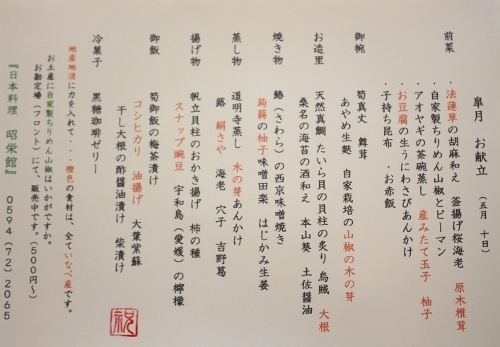 皐月 お献立 （五月 十日）
前菜 ・法蓮草の胡麻和え 釜揚げ桜海老 原木椎茸
・自家製ちりめん山椒とピーマン
・アオヤギの茶碗蒸し 産みたて玉子 柚子
・お豆腐の生うにわさびあんかけ
・子持ち昆布 ・お赤飯
御椀 筍真丈 舞茸
あやめ生麩 自家栽培の山椒の木の芽
お造里 天然真鯛 たいら貝の貝柱の炙り 烏賊 大根
桑名の海苔の酒和え 本山葵 土佐醤油
焼き物 鰆（さわら）の西京味噌焼き
蒟蒻の柚子味噌田楽 はじかみ生姜
蒸し物 道明寺蒸し 木の芽あんかけ
蕗 絹さや 海老 穴子 吉野葛
揚げ物 帆立貝柱のおかき揚げ 柿の種
スナップ豌豆 宇和島（愛媛）の檸檬
御飯 筍御飯の梅茶漬け
コシヒカリ 油揚げ 大葉紫蘇
干し大根の酢醤油漬け 柴漬け
冷菓子 黒糖珈琲ゼリー
地産地消に力を入れて・・橙色の食材は、全ていなべ産です。
お土産に自家製ちりめん山椒はいかがですか。
お勘定場（フロント）にて、販売中です。（５００円〜）
『日本料理 昭栄館』 ０５９４（７２）２０６５
祝